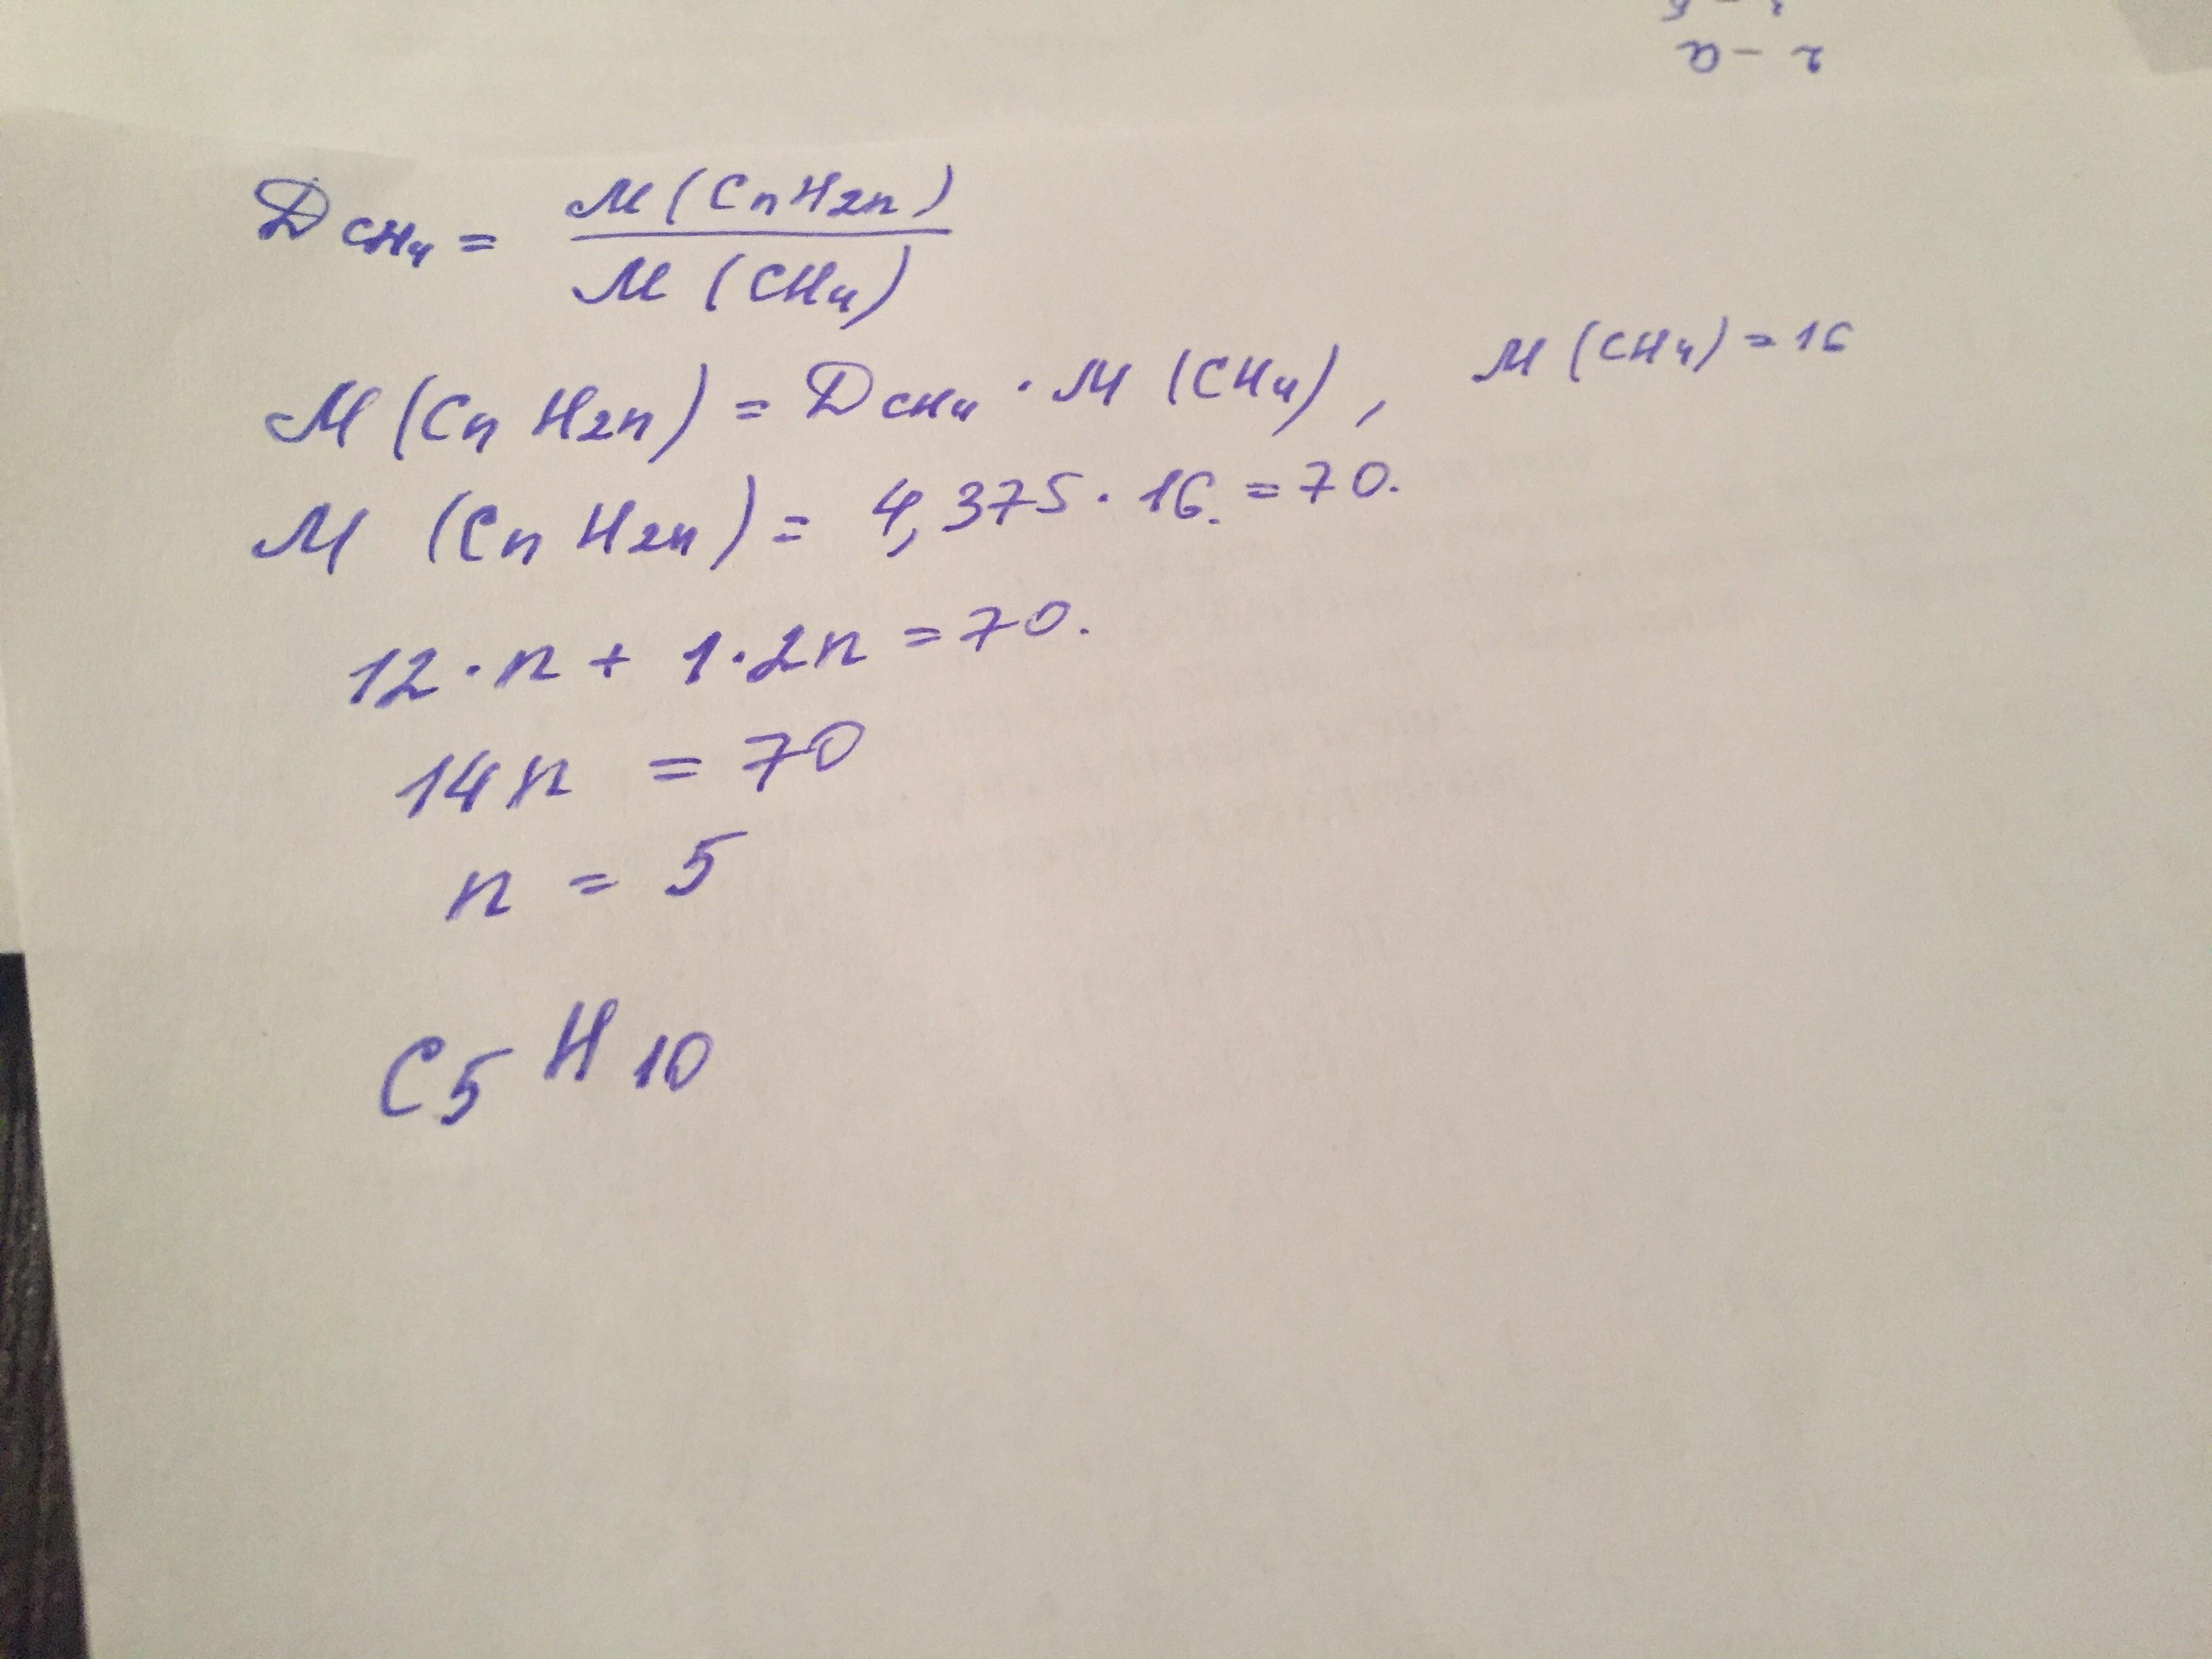 2 - а
DCH₄ = M(CnH2n) / M(CH₄)
M(CnH2n) = DCH₄ · M(CH₄), M(CH₄) = 16
M(CnH2n) = 4,375 · 16. = 70.
12 · n + 1 · 2n = 70.
14n = 70
n = 5
C₅H₁₀